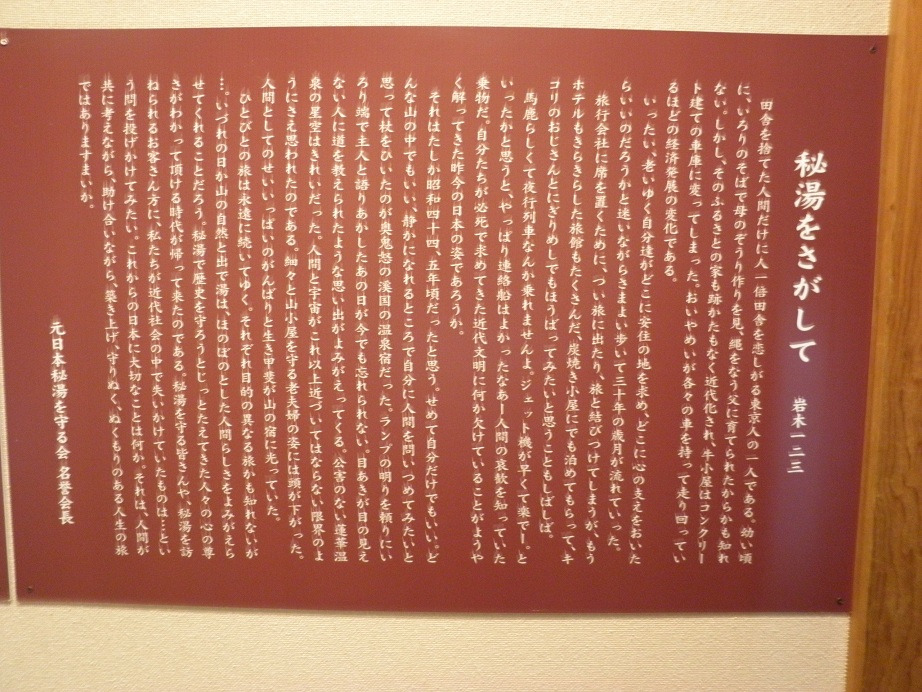 秘湯をさがして
岩木一二三
田舎を捨てた人間だけに人一倍田舎を恋しがる東京人の一人である。幼い頃
に、いろりのそばで母のぞうり作りを見、縄をなう父に育てられたからかも知れ
ない。しかし、そのふるさとの家も跡かたもなく近代化され、牛小屋はコンクリー
ト建ての車庫に変ってしまった。おいやめいが各々の車を持って走り回ってい
るほどの経済発展の変化である。
いったい、老いゆく自分達がどこに安住の地を求め、どこに心の支えをおいた
らいいのだろうかと迷いながらさまよい歩いて三十年の歳月が流れていった。
旅行会社に席を置くために、つい旅に出たり、旅と結びつけてしまうが、もう
ホテルもきらきらした旅館もたくさんだ、炭焼き小屋にでも泊めてもらって、キ
コリのおじさんとにぎりめしでもほうばってみたいと思うこともしばしば。
馬鹿らしくて夜行列車なんか乗れませんよ。ジェット機が早くて楽でー。と
いったかと思うと、やっぱり連絡船はよかったなあー人間の哀歓を知っていた
乗物だ。自分たちが必死で求めてきた近代文明に何か欠けていることがようや
く解ってきた昨今の日本の姿であろうか。
それはたしか昭和四十四、五年頃だったと思う。せめて自分だけでもいい。ど
んな山の中でもいい、静かになれるところで自分に人間を問いつめてみたいと
思って杖をひいたのが奥鬼怒の渓国の温泉宿だった。ランプの明りを頼りにい
ろり端で主人と語りあかしたあの日が今でも忘れられない。目あきが目の見え
ない人に道を教えられたような思い出がよみがえってくる。公害のない蓬莱温
泉の星空はきれいだった。人間と宇宙がこれ以上近づいてはならない限界のよ
うにさえ思われたのである。細々と山小屋を守る老夫婦の姿には頭が下がった。
人間としてのせいいっぱいのがんばりと生き甲斐が山の宿に光っていた。
ひとびとの旅は永遠に続いてゆく。それぞれ目的の異なる旅かも知れないが
…。いづれの日か山の自然と出で湯は、ほのぼのとした人間らしさをよみがえら
せてくれることだろう。秘湯で歴史を守ろうとじっとたえてきた人々の心の尊
さがわかって頂ける時代が帰って来たのである。秘湯を守る皆さんや、秘湯を訪
ねられるお客さん方に、私たちが近代社会の中で失いかけていたものは…とい
う問を投げかけてみたい。これからの日本に大切なことは何か。それは、人間が
共に考えながら、助け合いながら、築き上げ、守りぬく、ぬくもりのある人生の旅
ではありますまいか。
元日本秘湯を守る会 名誉会長